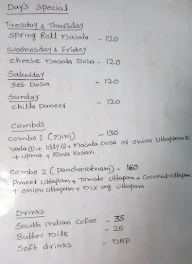 Day's Special
Tuesday & Thursday
Spring Roll Masala - 120
Wednesday & Friday
Cheese Masala Dosa - 120
Saturday
Set Dosa - 120
Sunday
Chilla Paneer - 120
Combos
Combo 1 (Mini) - 130
Vada (1) + Idly (1) + Masala Dosa or Onion Uttappam
+ Upma + Rava Kesari
Combo 2 (Pancharatnam) - 160
Paneer Uttapam + Tomato Uttapam + Coconut Uttapam
+ Onion Uttapam + Mix Veg Uttapam
Drinks
South Indian Cofee - 35
Butter Milk - 25
Soft drinks - MRP